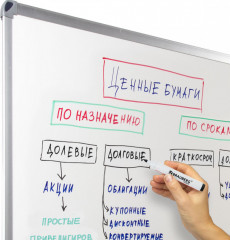 ЦЕННЫЕ БУМАГИ
ПО НАЗНАЧЕНИЮ
ПО СРОКАМ
ДОЛЕВЫЕ
ДОЛГОВЫЕ
КРАТКОСРОЧ
АКЦИИ
ОБЛИГАЦИИ
ПРОСТЫЕ
КУПОННЫЕ
ДИСКОНТНЫЕ
КОНВЕРТИРУЕМЫЕ